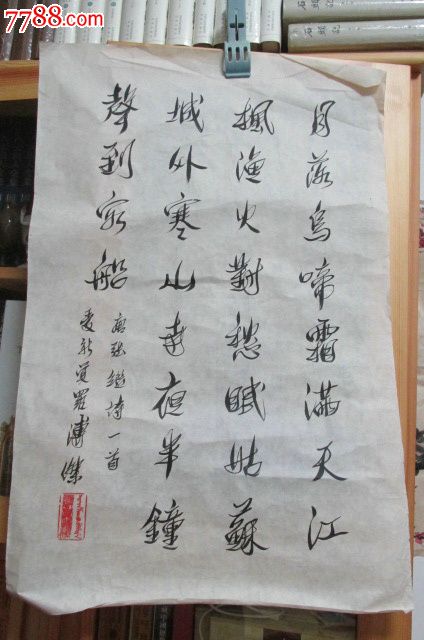 7788.com
石頭記
月落烏啼霜滿天江
楓漁火對愁眠姑蘇
城外寒山寺夜半鐘
聲到客船
唐張繼詩一首
愛新覺羅溥傑